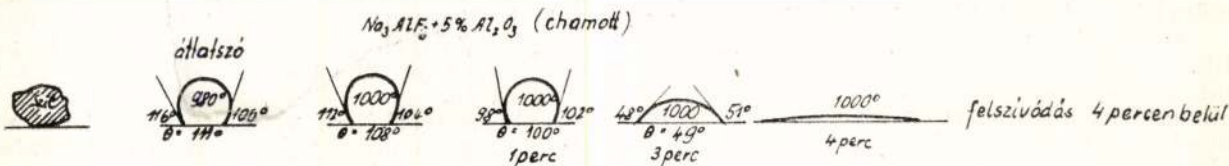 Na₃AlF₆ + 5% Al₂O₃ (chamott)
átlatszó
980°
116° 106°
θ = 111°
1000°
112° 104°
θ = 108°
1000°
98° 102°
θ = 100°
1 perc
1000
48° 51°
θ = 49°
3 perc
1000°
4 perc
felszívódás 4 percen belül